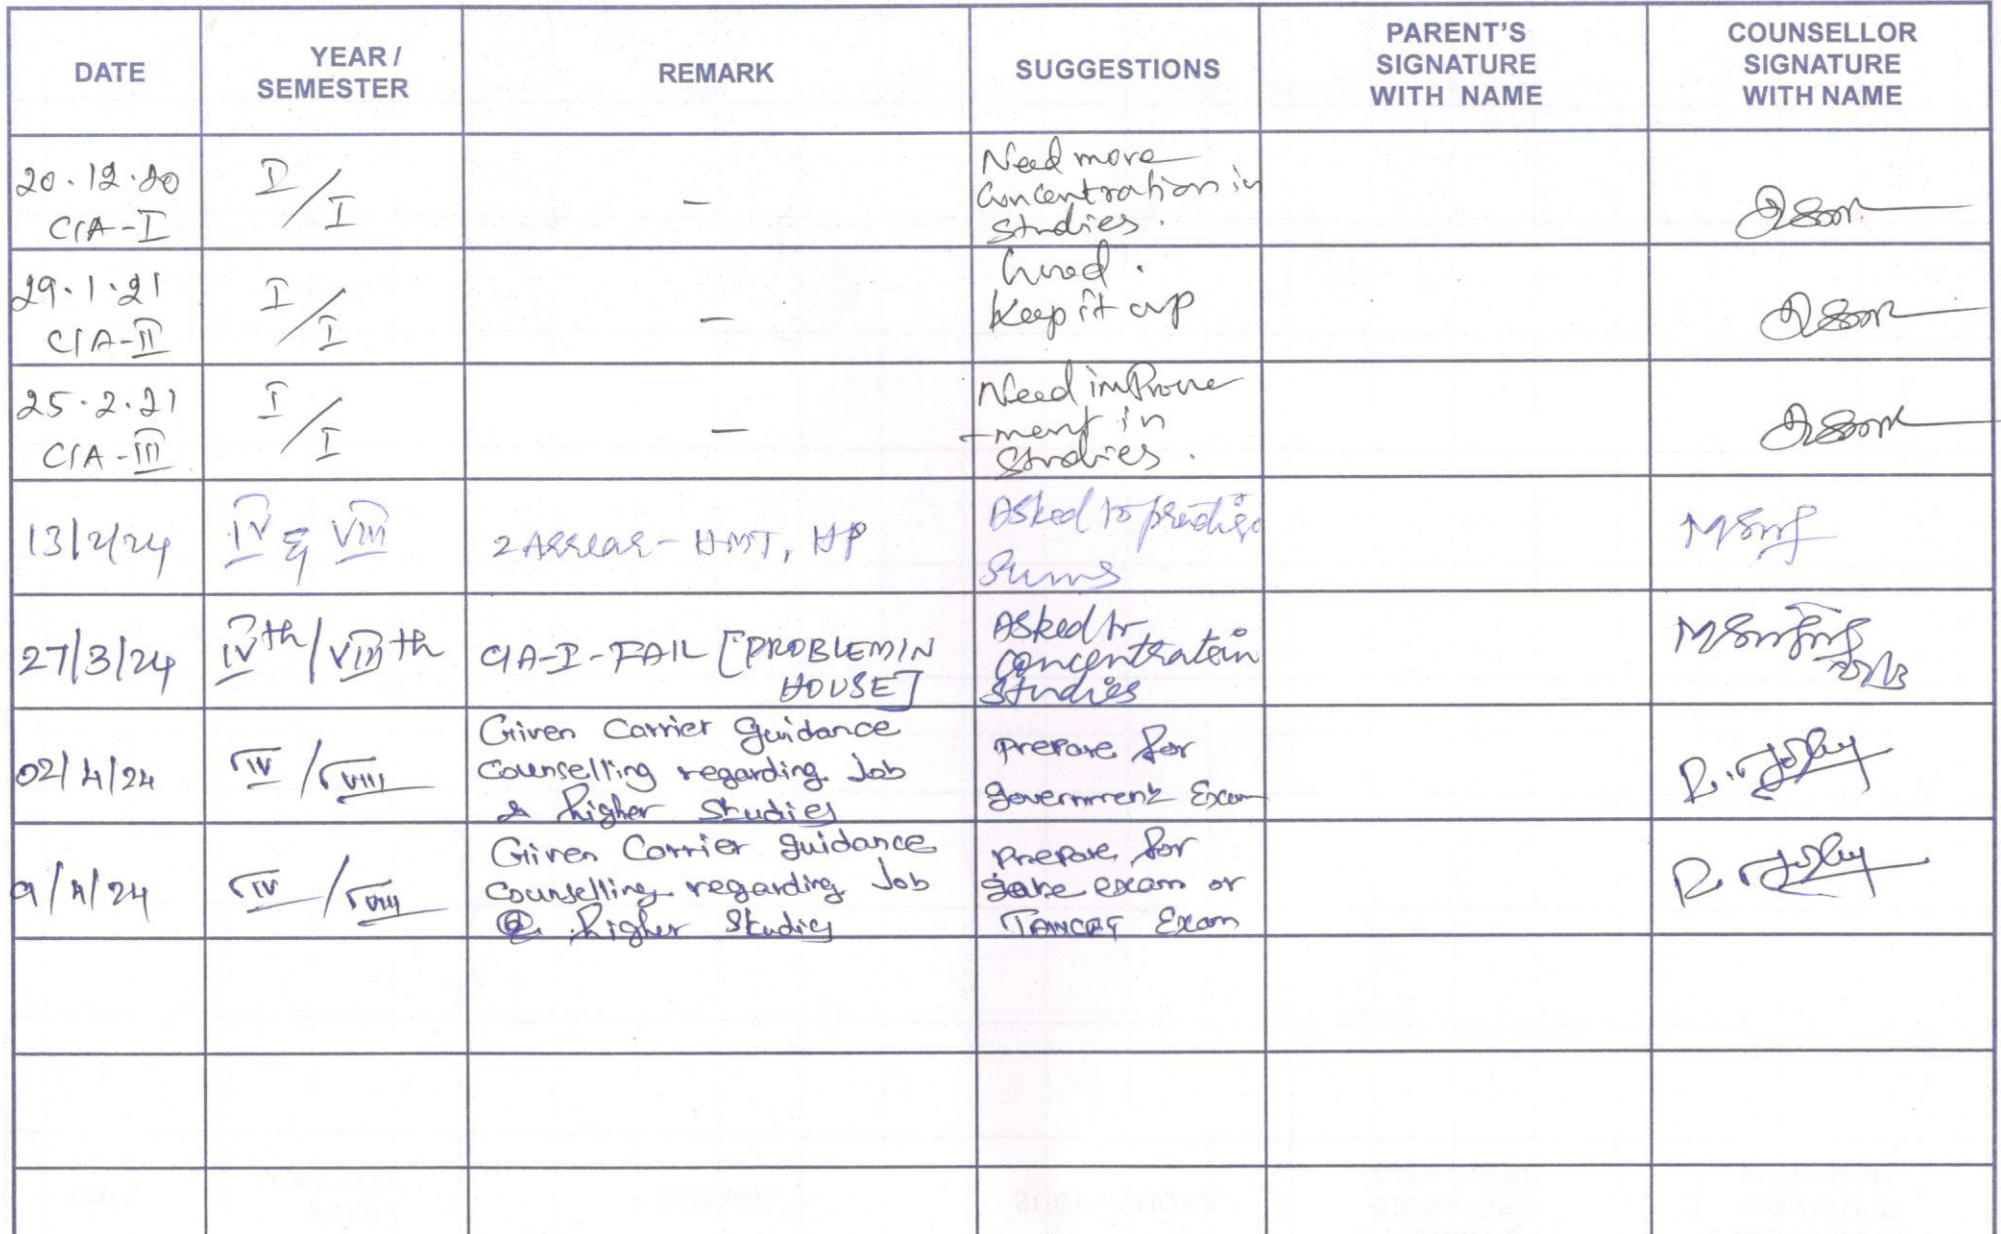 DATE
YEAR /
SEMESTER
REMARK
SUGGESTIONS
PARENT'S
SIGNATURE
WITH NAME
COUNSELLOR
SIGNATURE
WITH NAME
20.12.20
CIA-I
I/I
–
Need more
concentration in
studies.
29.1.21
CIA-II
I/I
–
Good.
Keep it up
25.2.21
CIA-III
I/I
–
Need improve
-ment in
studies.
13/2/24
IV & VIII
2 Arrear - HMT, HP
Asked to practise
sums
27/3/24
IVth/VIIIth
CIA-I-FAIL [PROBLEM IN
HOUSE]
Asked to
concentrate in
studies
02/4/24
IV/VIII
Given Carrier Guidance
Counselling regarding Job
& higher Studies
Prepare for
Government Exam
9/4/24
IV/VIII
Given Carrier Guidance
Counselling regarding Job
higher Studies
Prepare for
gate exam or
TANCET Exam